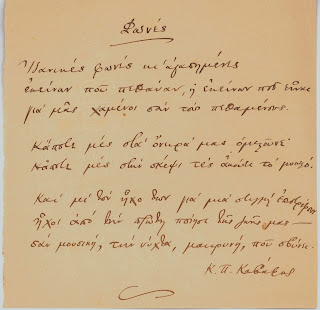 Φωνές
Ἰδανικές φωνές κι' ἀγαπημένες
ἐκείνων ποὺ πεθάναν, ἢ ἐκείνων ποὺ εἶναι
γιά μᾶς χαμένοι σάν τούς πεθαμένους.
Κάποτε μές στά ὄνειρά μας ὁμιλοῦνε·
κάποτε μές στήν σκέψι τές ἀκούει τό μυαλό.
Καί μέ τόν ἦχο των γιά μιά στιγμή ἐπιστρέφουν
ἦχοι ἀπό τήν πρώτη ποίησι τῆς ζωῆς μας —
σάν μουσική, τήν νύχτα, μακρυνή, πού σβύνει.
Κ. Π. Καβάφης